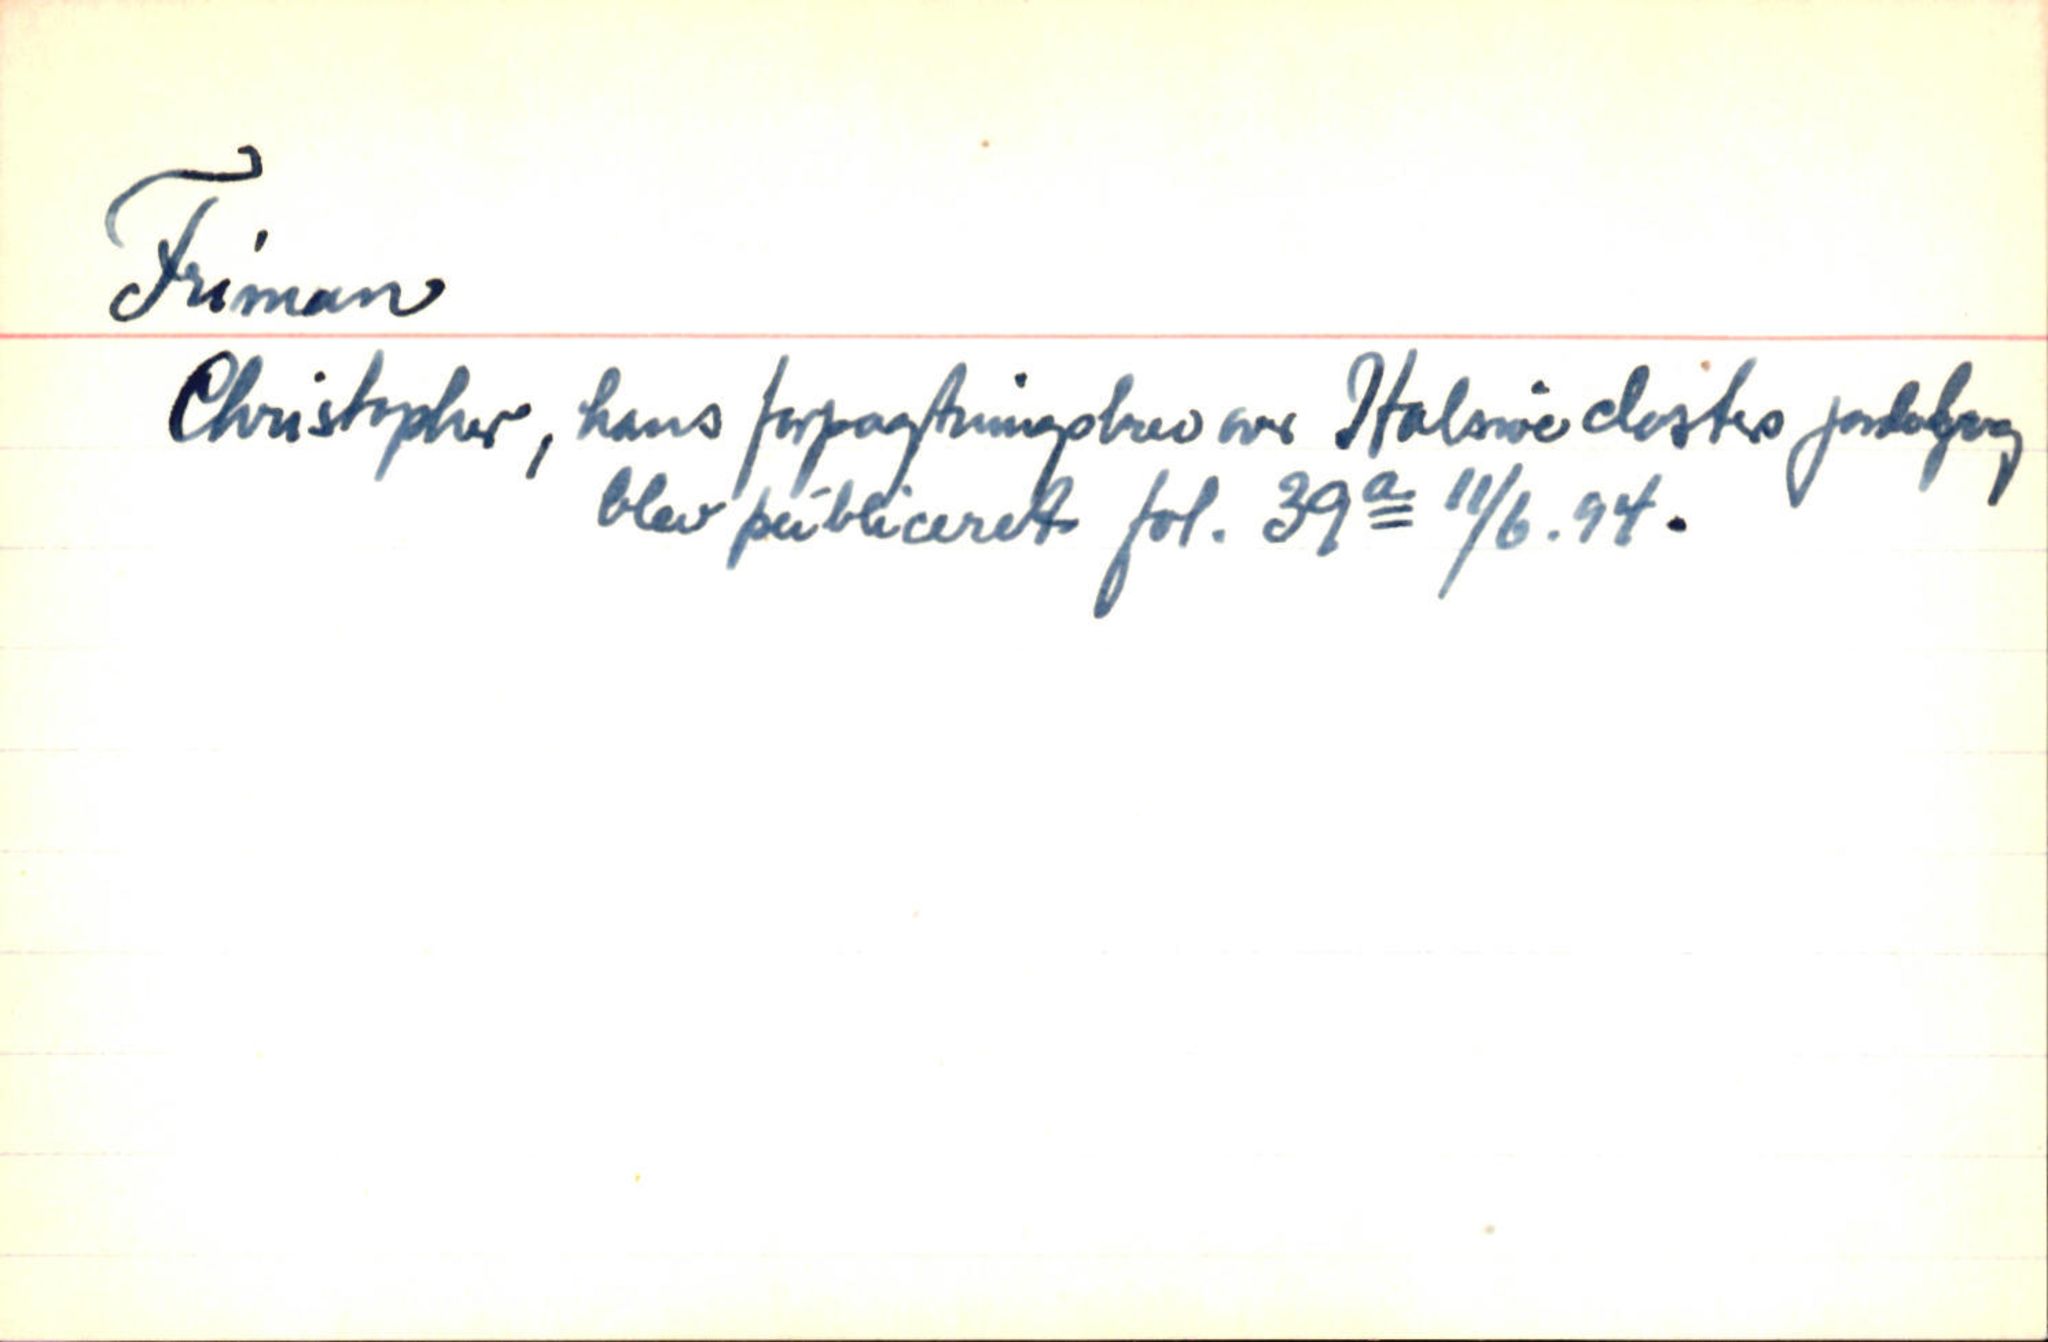 Friman
Christopher, hans forpagtningsbrev over Halsnøe closters
blev publiceret fol. 39a 11/6.94.